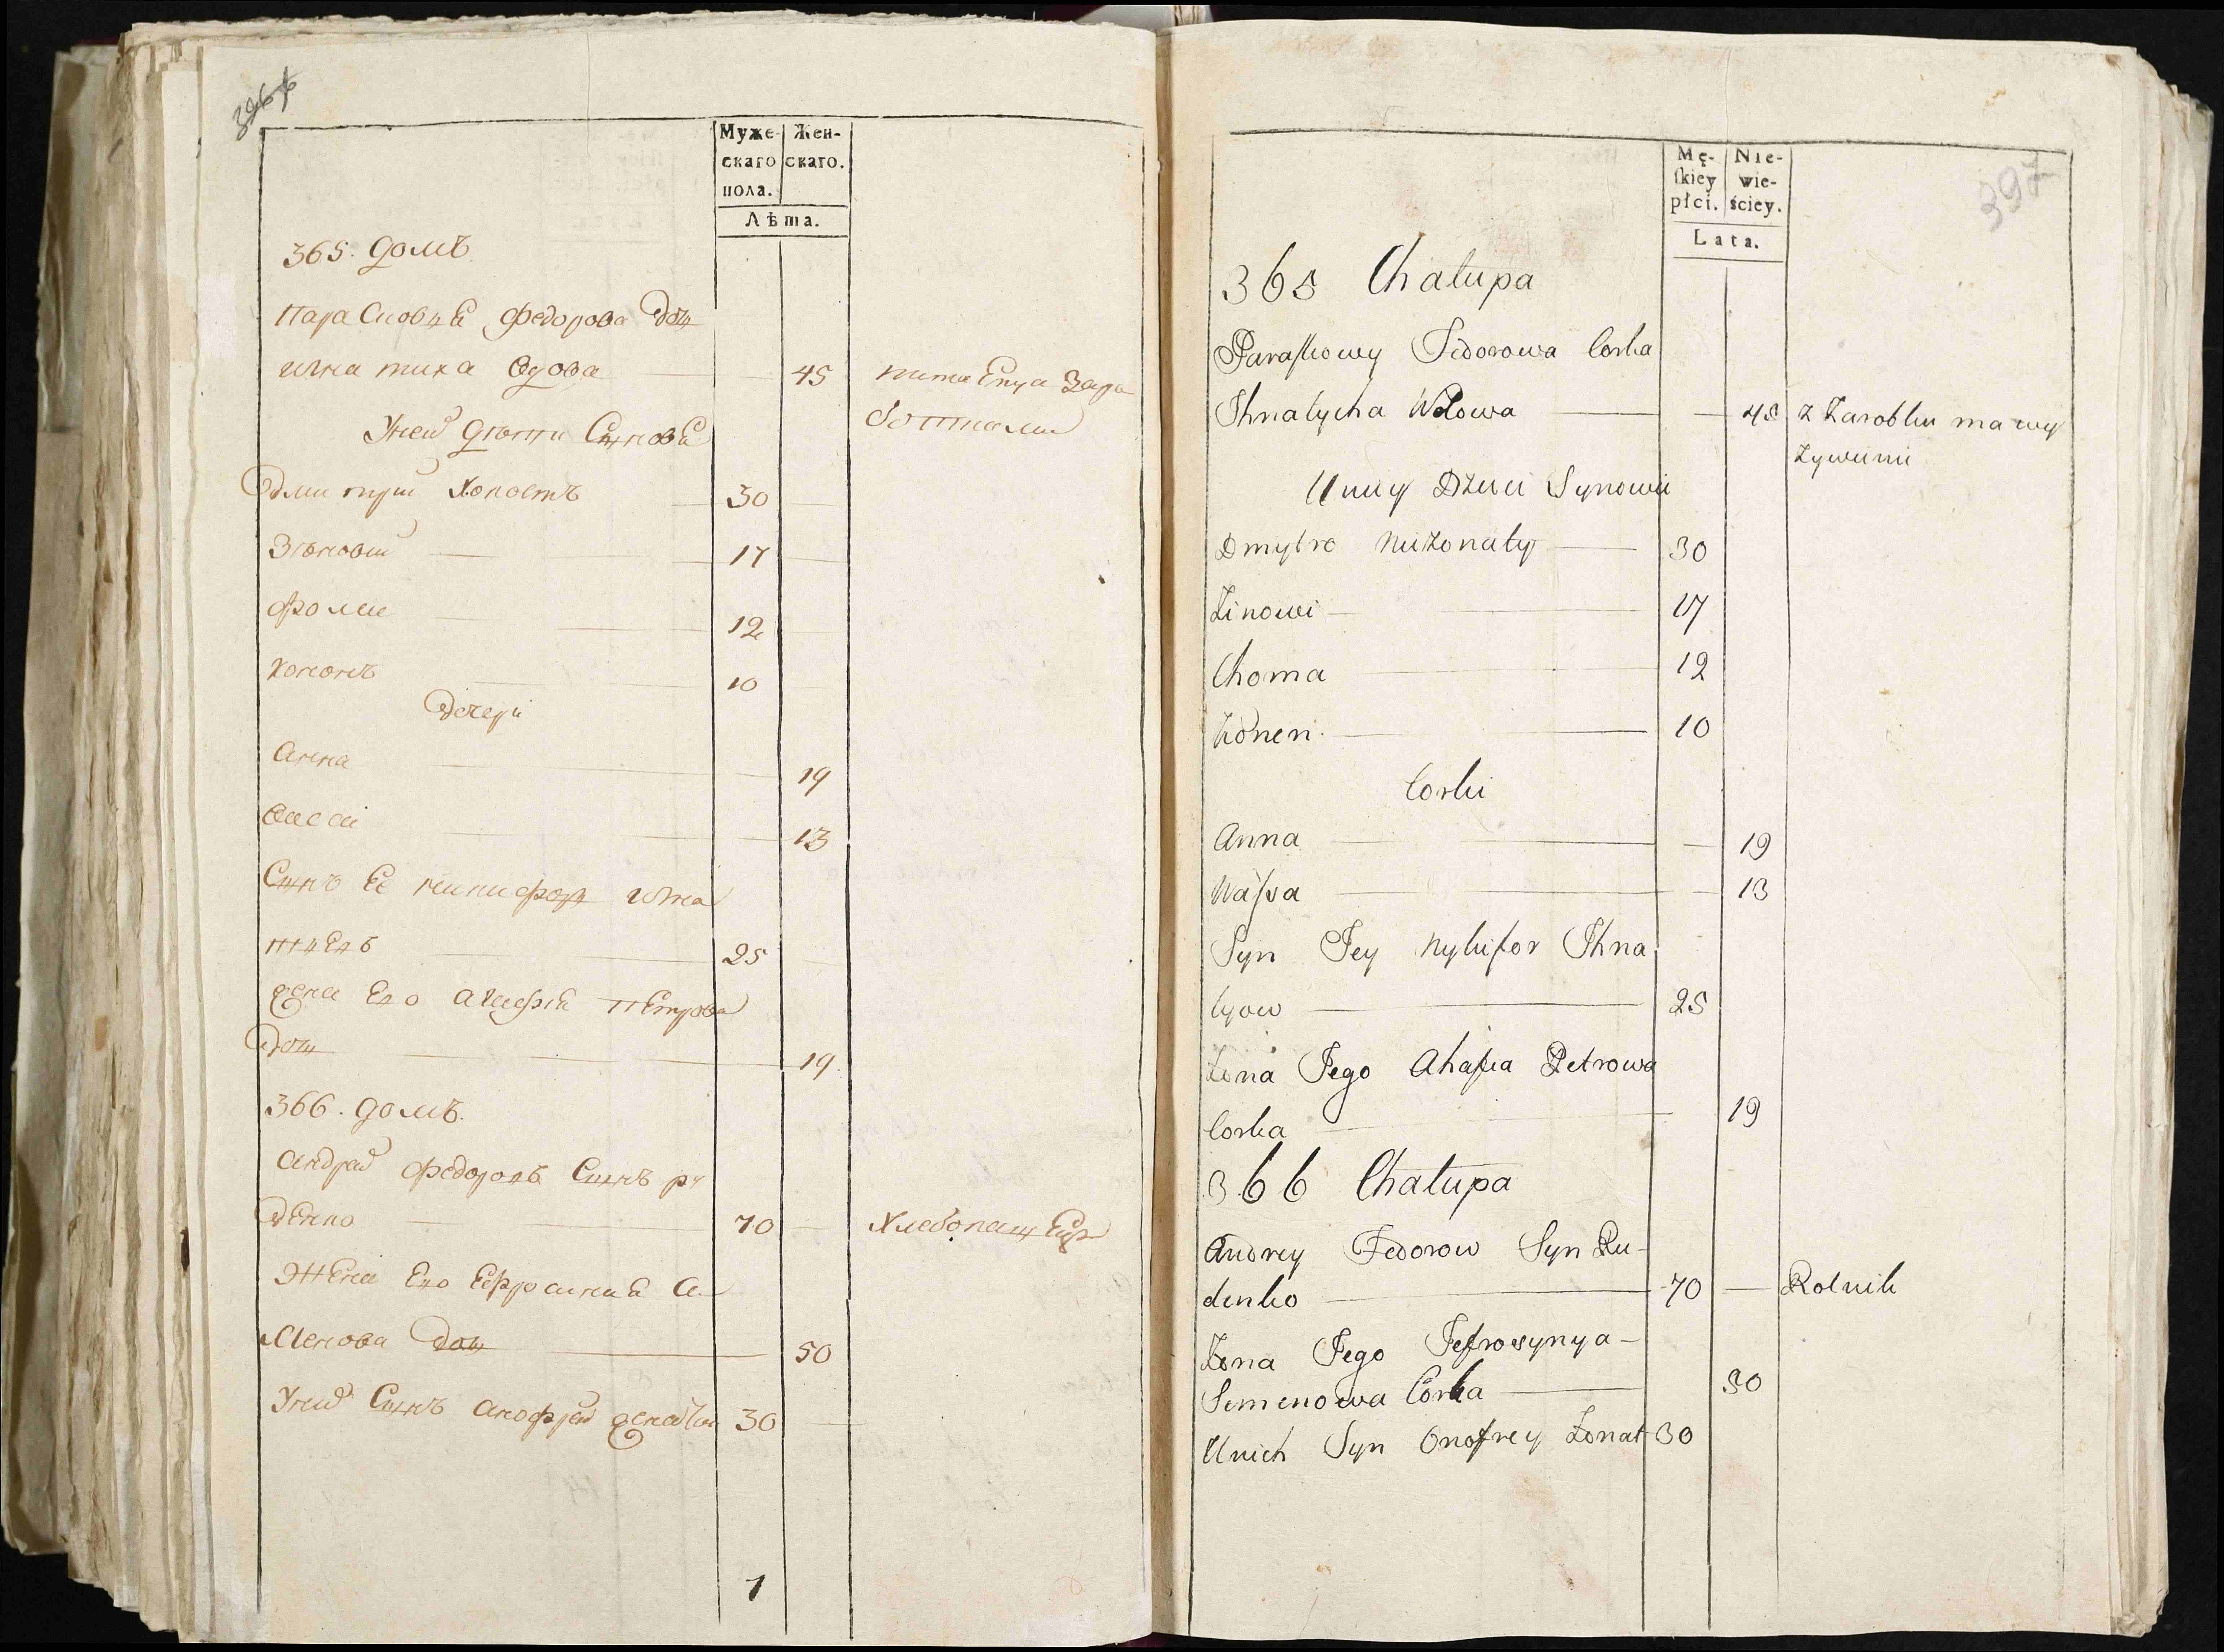 Муже- Жен-
скаго скаго.
пола.
Лѣта.
365. домъ
Парасковѣе Федорова дочь
игнатиха вдова 45 питаетца зара
ботками
У ней дѣти Сыновѣ
дмитрий Холостъ 30
Зѣновий 17
Фома 12
Кононъ 10
дочери
Анна 19
Васса 13
Сынъ Ее Никифоръ игна
тиевъ 25
жена Его Агафия Петрова
дочь 19
366. домъ.
Андрей Федоровъ Сынъ ру
денко 70 Хлебопашец
Жена Его Ефросиния Се
менова дочь 50
У ней Сынъ Анофрей женатый 30
1
397
Mę- Nie-
ſkiey wie-
płci. ściey.
Lata.
365 Chałupa
Paraſkowy Fedorowa Corka
Ihnatycha Wdowa 45 z Zarobku ma swy
Zywieni
U niey Dzieci Synowie
Dmytro nieżonaty 30
Zinowi 17
Choma 12
Konen 10
Corki
Anna 19
Waſsa 13
Syn Jey Nykifor Ihna
tyow 25
Żona Jego Ahafia Petrowa
Corka 19
366 Chałupa
Andrey Fedorow Syn Ru-
denko 70 Rolnik
Żona Jego Jefrosynya
Semenowa Corka 50
U nich Syn Onofrey Żonat 30